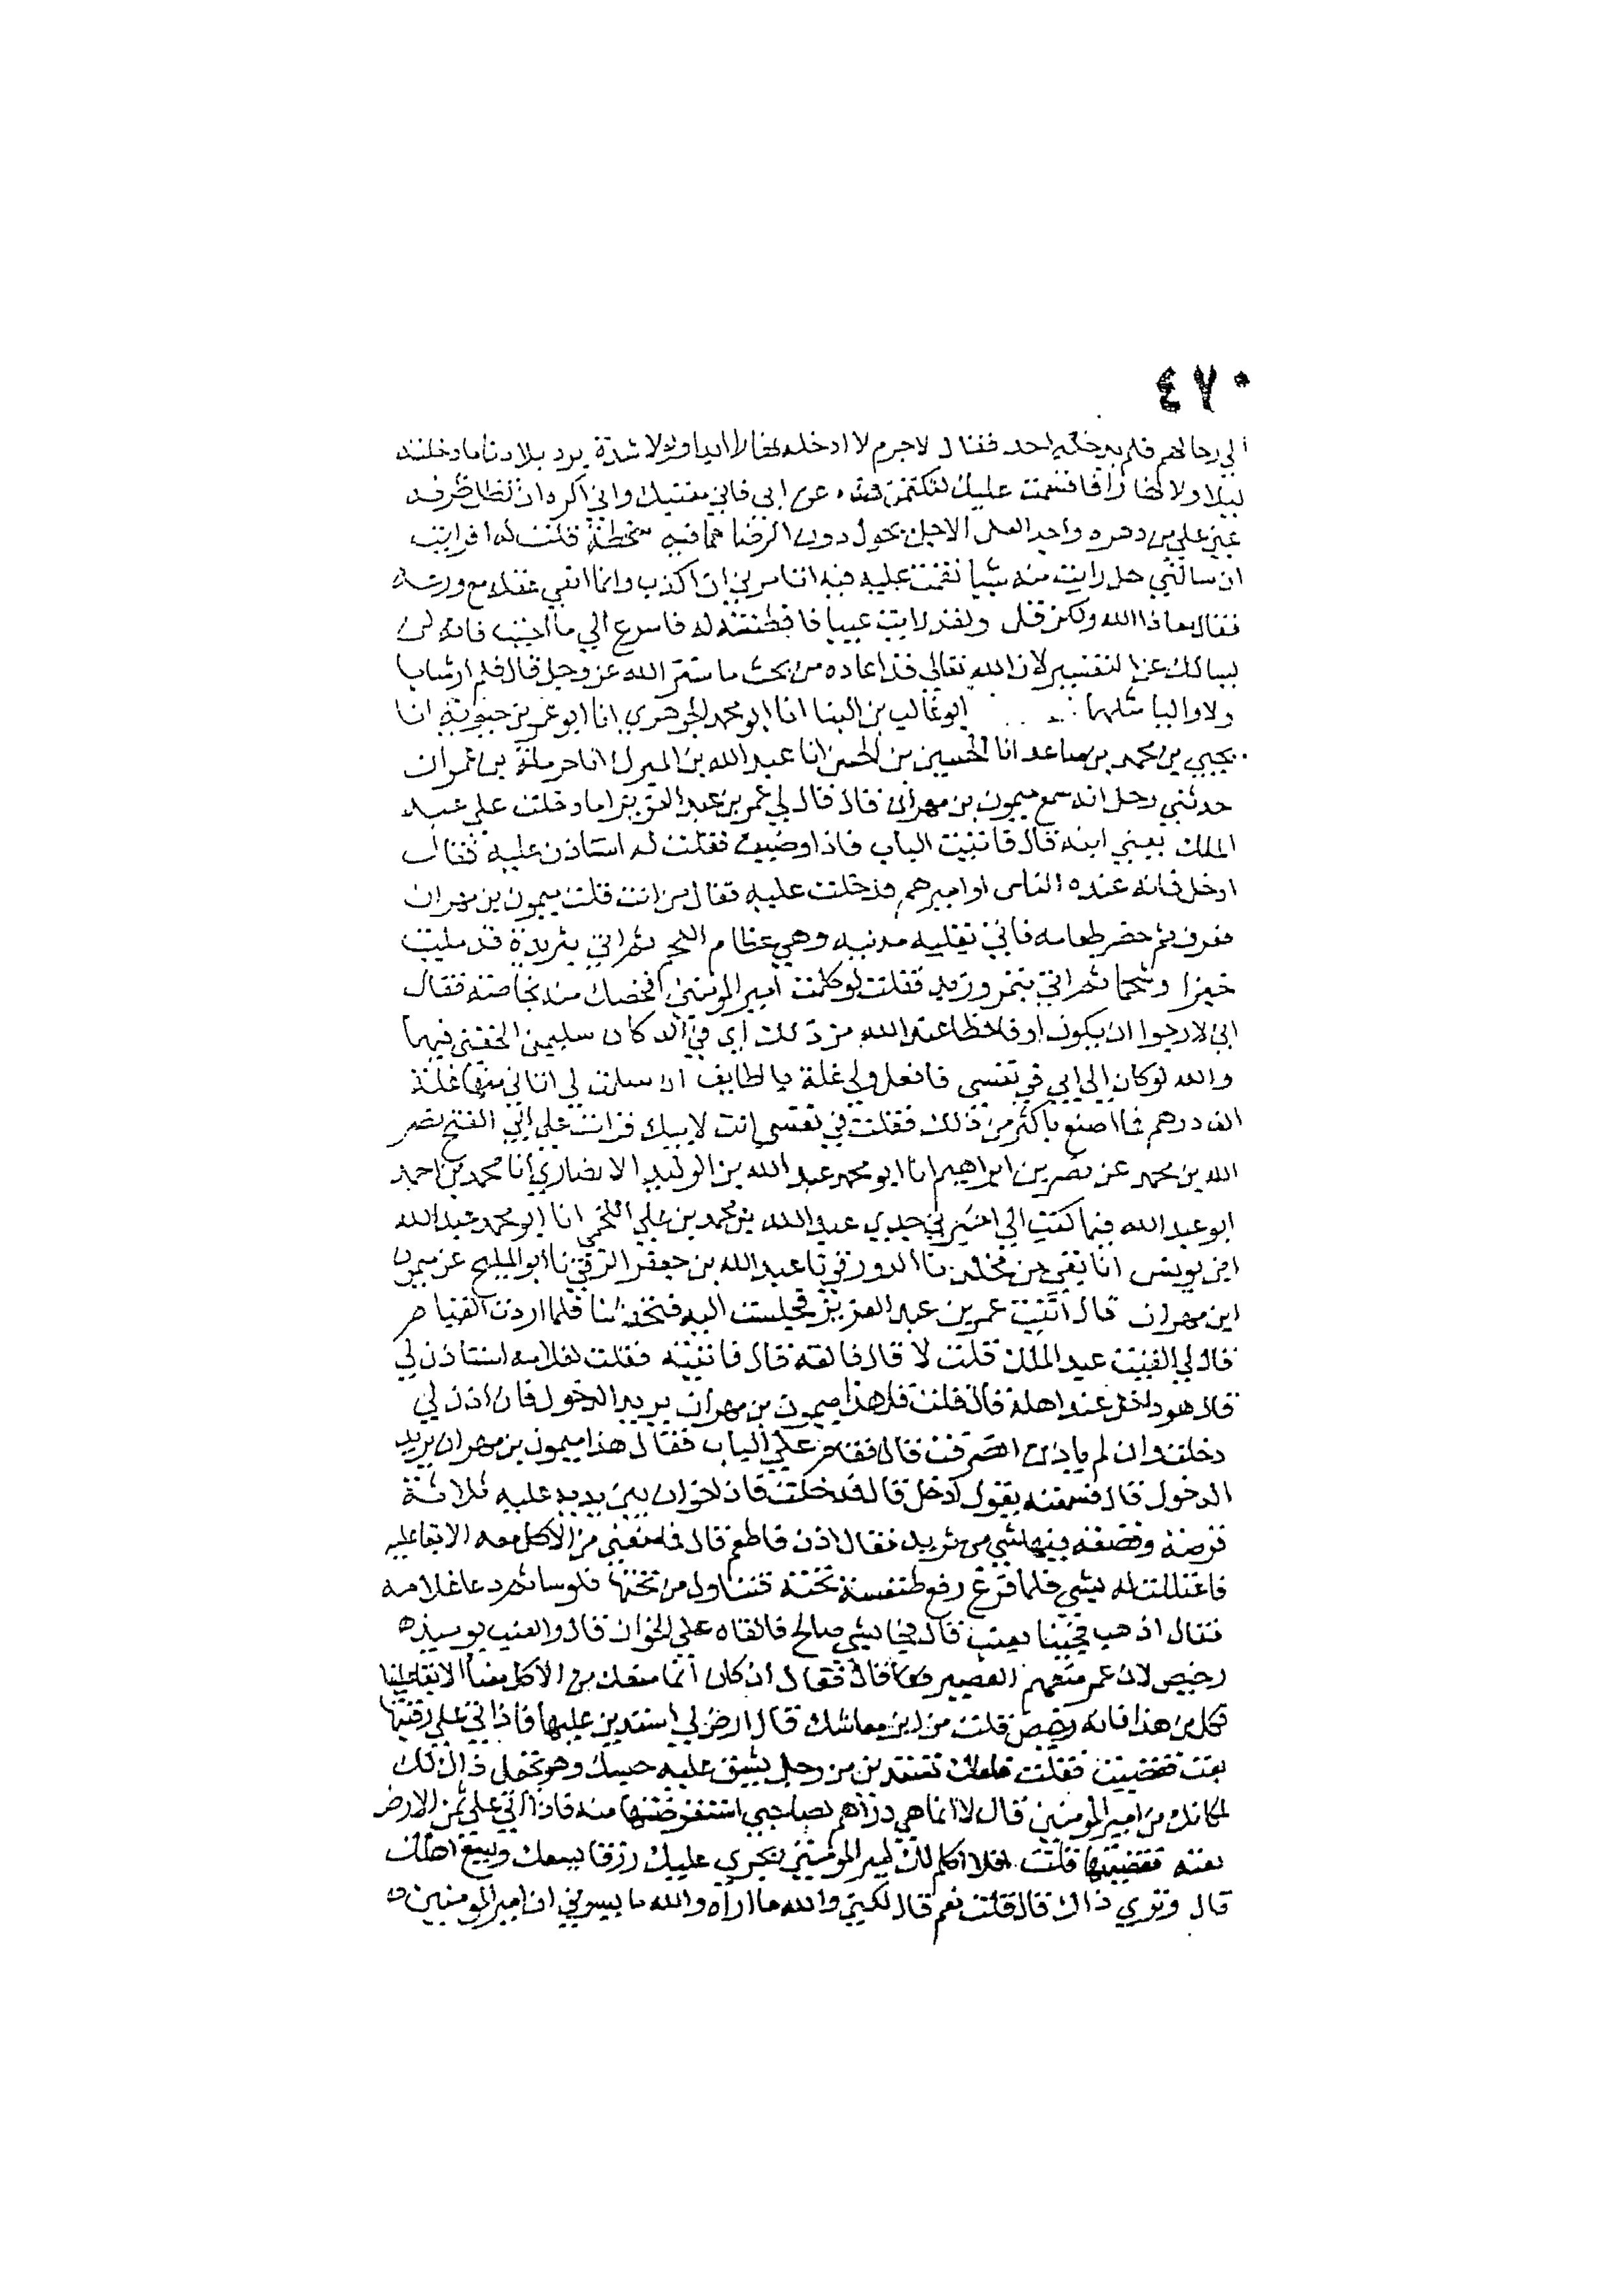 ٤٧٠
الي رحالهم فلم يدخله احد فقال لاجرم لا ادخله نهارا ولولا شدة برد بلادنا ما دخلته
ليلا ولا نهارا فاقسمت عليك لتكتمن عن ابي فاني مفتيك واني اكره ان
عمر علي من دهره يحول دون الرضا مما فيه سخطه قلت له افرايت
ان سالني هل رايت منه شيا نقمت عليه فيه اتامرني ان اكذب وانما اتقي عقله مع ورعه
فقال معاذ الله ولكن قل ولقد رايت عيبا فافطنته له فاسرع الي ما احببت فانه لن
يسالك عن التفسير لان الله تعالي قد اعاذه من بحث ما ستر الله عز وجل قال فلم ار شابا
ولا والبا مثلهما ابو غالب بن البنا انا ابو محمد الجوهري انا ابو عمر بن حيويه انا
يحيي بن محمد بن صاعد انا الحسين بن الحسن انا عبد الله بن المبرك انا حرملة بن عمران
حدثني رجل انه سمع ميمون بن مهران قال قال لي عمر بن عبد العزيز اما دخلت علي عبد
الملك يعني ابنه قال فاتيت الباب فاذا وصيف فقلت له استاذن عليه فقال
ادخل فانه عنده الناس او امير هم فدخلت عليه فقال من انت قلت ميمون بن مهران
فعرف ثم حضر طعامه فاتي بقليه مدنيه وهي عظام اللحم ثم اتي بثريدة قد مليت
خبزا وشحما ثم اتي بتمر وزبد فقلت لو كلمت امير المومنين فخصك منه بخاصته فقال
اني لارجوا ان يكون اوفا حظا عند الله من ذلك كان سليمن الحقني فيهما
والله لو كان الي ابي في نفسي ما فعل ولي غلة بالطايف ان سلمت لي اتاني منها غلة
الف درهم فما اصنع باكثر من ذلك فقلت في نفسي انت لابيك قرات علي ابي الفتح نصر
الله بن محمد عن نصر بن ابراهيم انا ابو محمد عبد الله بن الوليد الانصاري انا محمد بن احمد
ابو عبد الله فيما كتب الي اخبرني جدي عبد الله بن محمد بن علي اللخمي انا ابو محمد عبد الله
ابن يونس انا بقي بن مخلد نا الدورقي نا عبد الله بن جعفر الرقي نا ابو المليح عن ميمون
ابن مهران قال اتيت عمر بن عبد العزيز فجلست اليه فتحدثنا فلما اردت القيام
قال لي القيت عبد الملك قلت لا قال فالقه قال فاتيته فقلت لغلامه استاذن لي
قال هو داخل عند اهله قال فقلت قل هذا ميمون بن مهران يريد الدخول فان اذن لي
دخلت وان لم ياذن انصرفت قال فقام علي الباب فقال هذا ميمون بن مهران يريد
الدخول قال فسمعته يقول ادخل قال فدخلت فاذ اخوان بين يديه عليه ثلاثة
قرصة وقصعة فيها شي من ثريد فقال ادن فاطعم قال فما منعني من الاكل معه الا بقا عليه
فاعتللت له بشي فلما فرغ رفع طنفسة تحته فتناول من تحتها فلوسا ثم دعا غلامه
فقال اذهب فجينا بعنب قال فجا بشي صالح فالقاه علي الخوان قال والعنب يوميذ
رخيص لان عمر منعهم العصير قال فقال ان كان انما منعك من الاكل معنا الابقا علينا
فكل من هذا فانه رخيص قلت من اين معاشك قال ارض لي استدين عليها فاذا اتي علي رقبتها
بعت فقضيت فقلت فلعلك تستدين من رجل يشق عليه حبسك وهو يتحمل ذلك
لمكانك من امير المومنين قال لا انما هي دراهم لصاحبتي استقرضتها منه فاذا اتي علي ثمن الارض
بعته فقضيتها قلت افلا اكلم لك امير المومنين يجري عليك رزقا يسعك ويسع اهلك
قال وتري ذاك قال قلت نعم قال لكني والله ما اراه والله ما يسرني ان امير المومنين